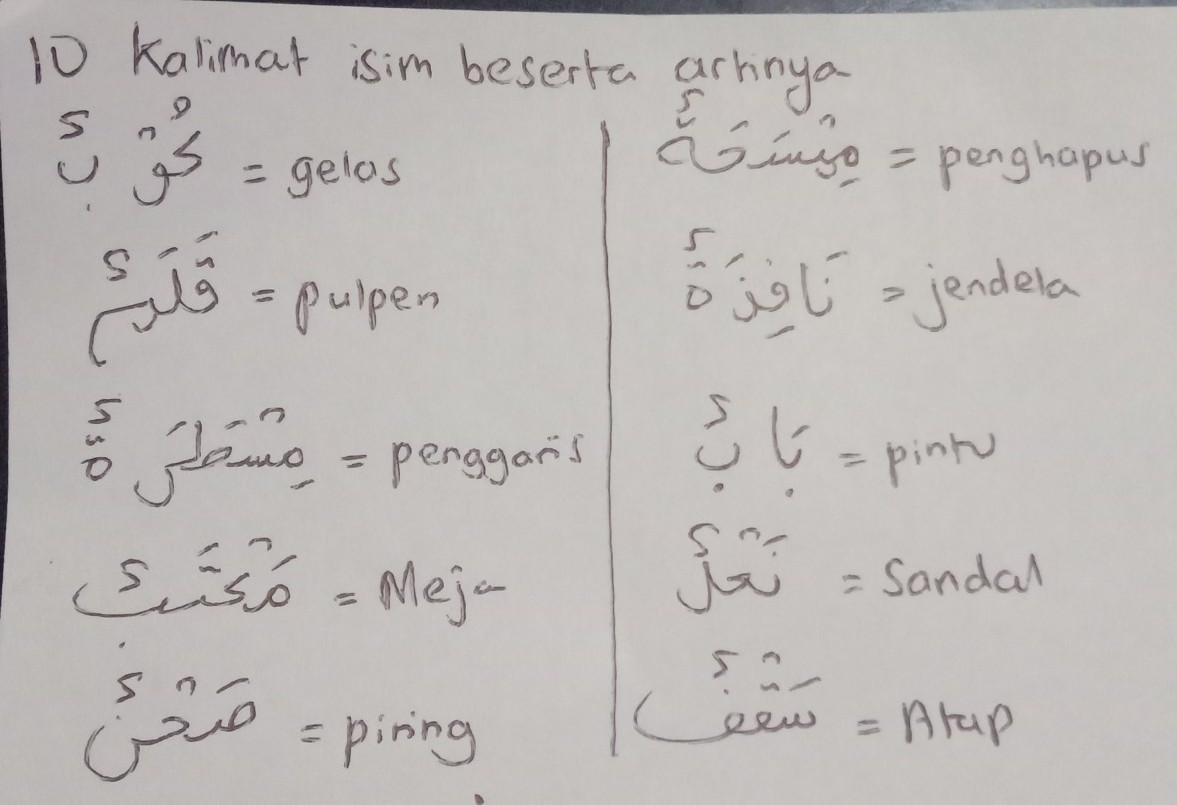 10 Kalimat isim beserta artinya
كُوْبٌ = gelas
قَلَمٌ = pulpen
مِسْطَرَةٌ = penggaris
مَكْتَبٌ = Meja
صَحْنٌ = piring
مِمْسَحَةٌ = penghapus
نَافِزَةٌ = jendela
بَابٌ = pintu
نَعْلٌ = Sandal
سَقْفٌ = Atap